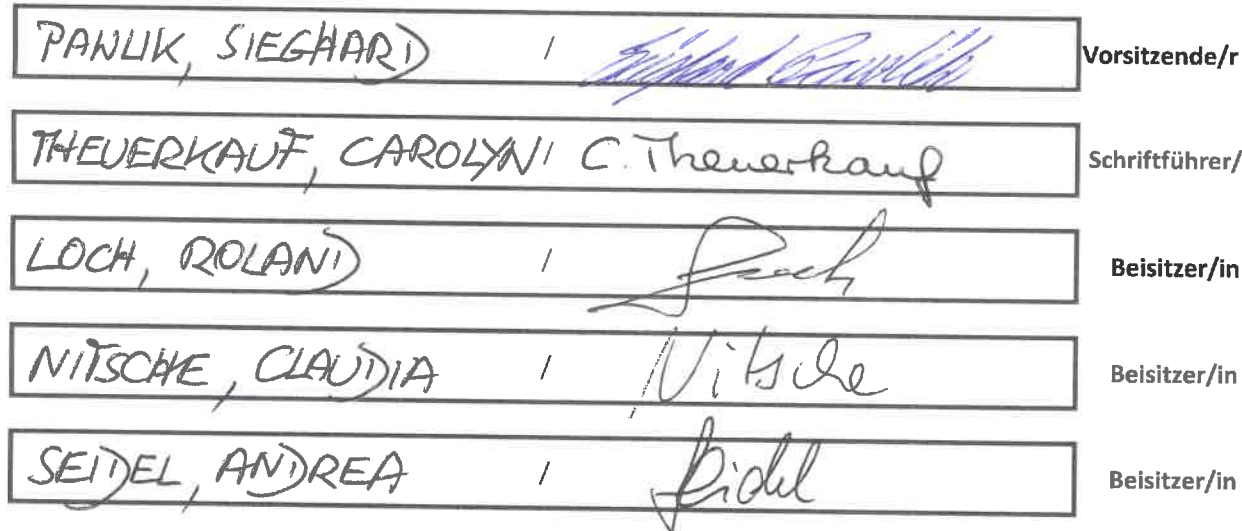 PAWLIK, SIEGHARD / Sieghard Pawlik Vorsitzende/r
THEUERKAUF, CAROLYN / C. Theuerkauf Schriftführer/
LOCH, ROLAND / Loch Beisitzer/in
NITSCHE, CLAUDIA / Nitsche Beisitzer/in
SEIDEL, ANDREA / Seidel Beisitzer/in